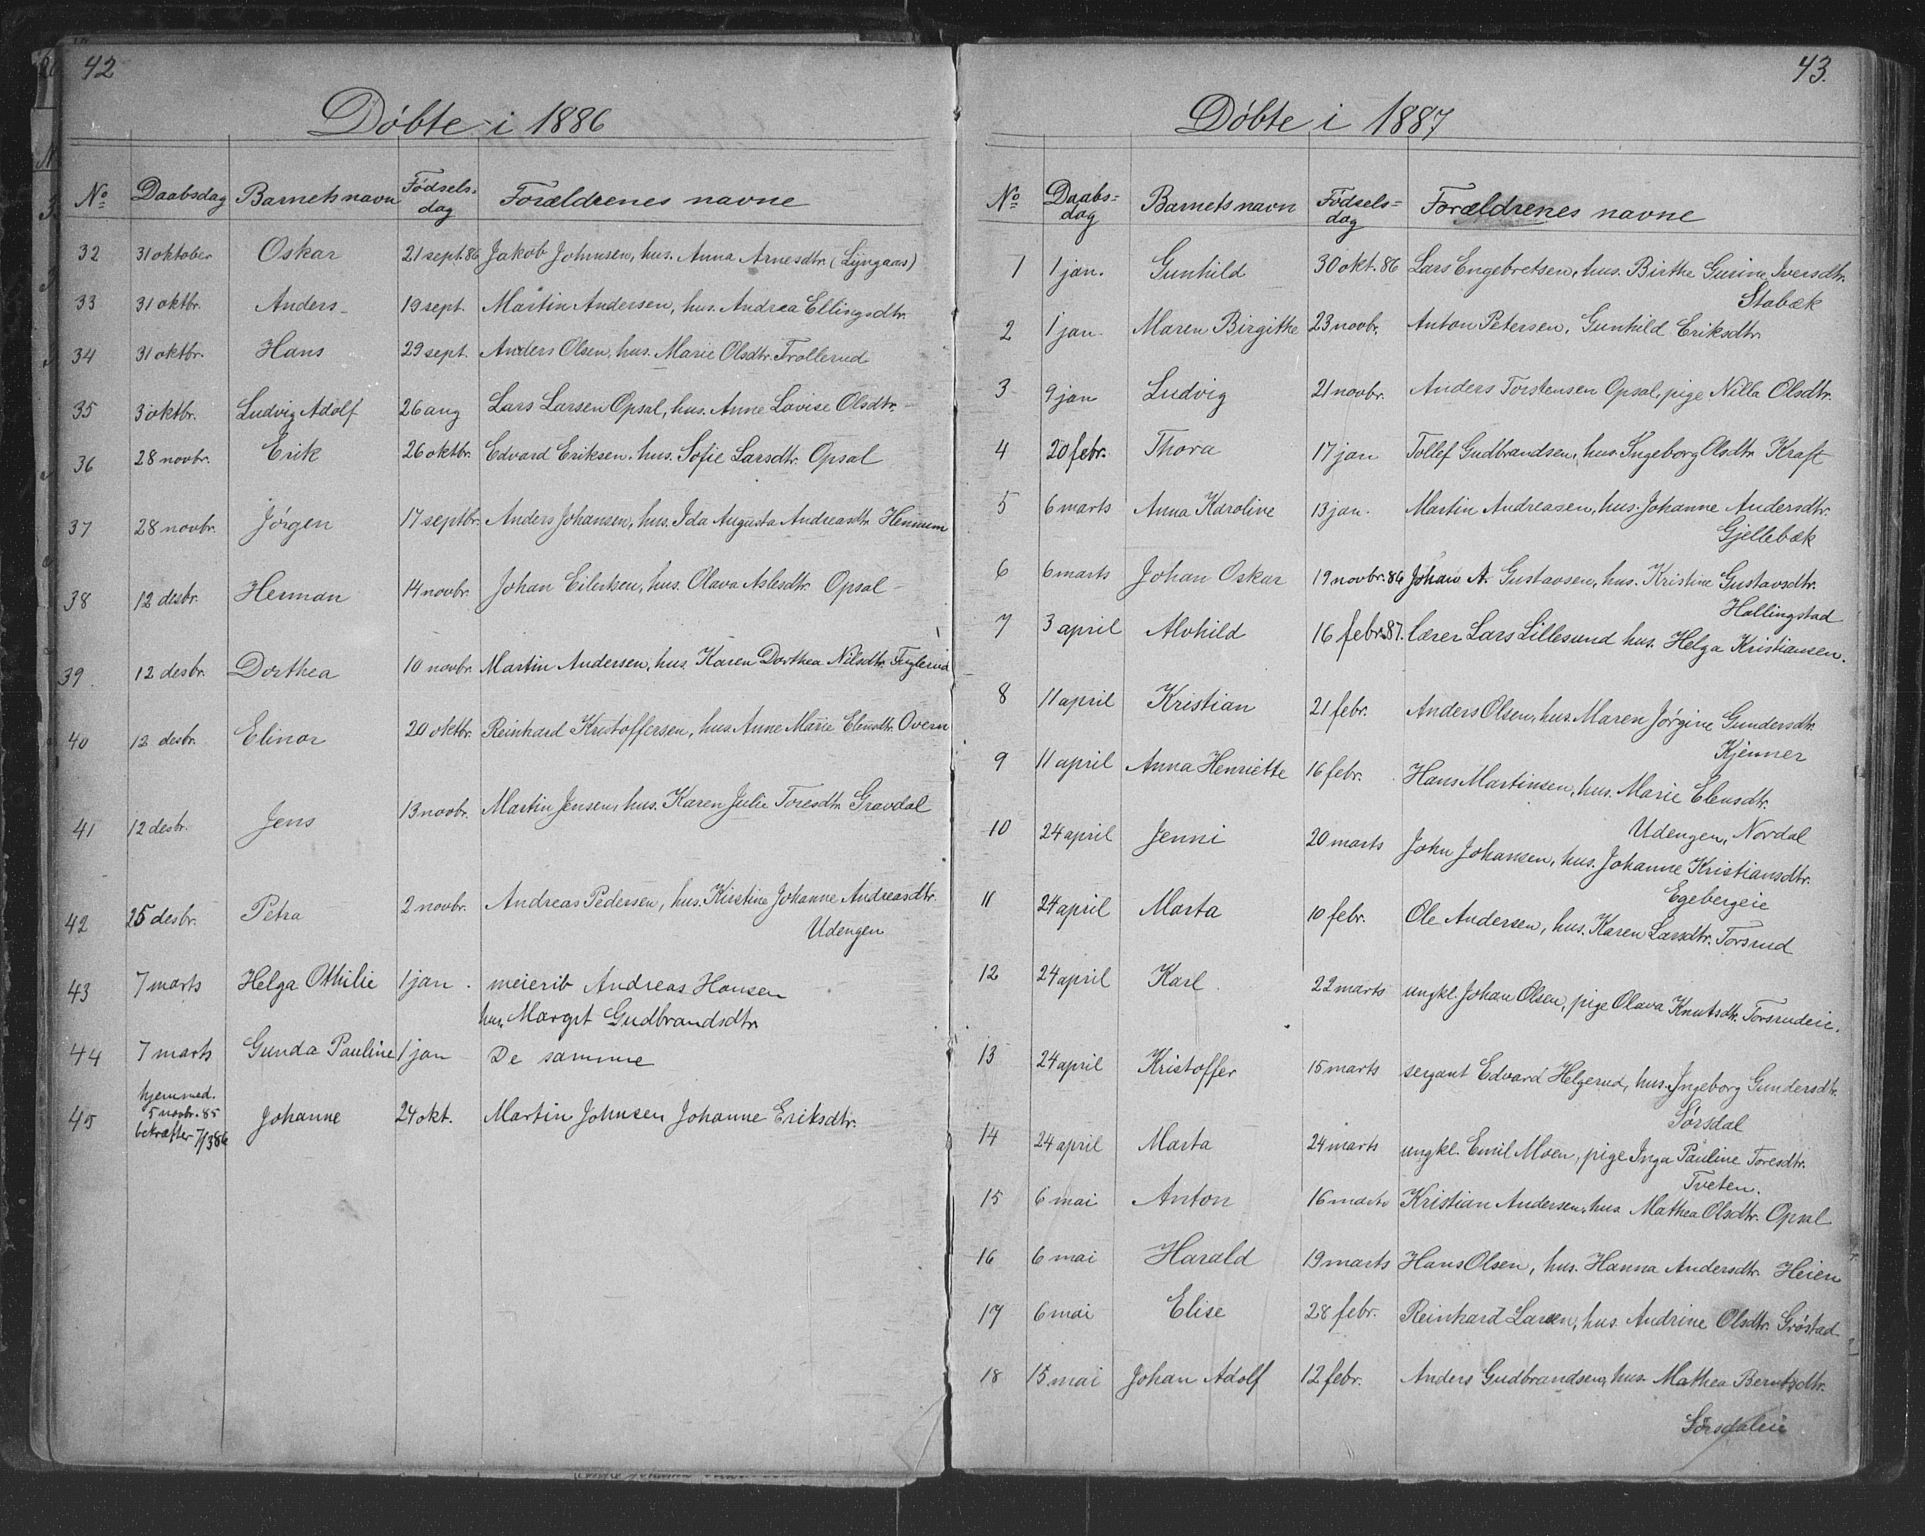 42
Döbte i 1886
No Daabsdag Barnets navn Födsels-dag Forældrenes navne
32 31 oktober Oskar 21 sept. 86 Jakob Johnsen, hus. Anna Arnesdtr. (Lyngaas)
33 31 oktbr. Anders 19 sept. Martin Andersen, hus. Andrea Ellingsdtr.
34 31 oktbr. Hans 29 sept. Anders Olsen, hus. Marie Olsdtr. Trollerud
35 31 oktbr. Ludvig Adolf 26 aug Lars Larsen Opsal, hus. Anne Lovise Olsdtr.
36 28 novbr. Erik 26 oktbr. Edvard Eriksen, hus. Sofie Larsdtr. Opsal
37 28 novbr. Jörgen 17 septbr. Anders Johansen, hus. Ida Augusta Andreasdtr. Hennum
38 12 desbr. Herman 14 novbr. Johan Eilertsen, hus. Olava Aslesdtr. Opsal
39. 12 desbr. Dorthea 10 novbr. Martin Andersen, hus. Karen Dorthea Nilsdtr. Fuglerud
40 12 desbr. Elinor 20 oktbr. Reinhard Kristoffersen, hus. Anne Marie Elensdtr. Overn
41 12 desbr. Jens 13 novbr. Martin Jensen, hus. Karen Julie Toresdtr. Gravdal
42 25 desbr. Petra 2 novbr. Andreas Pedersen, hus. Kirstine Johanne Andreasdtr.
Udengen
43 7 marts Helga Othilie 1 jan. meierib Andreas Hansen
hus. Margit Gudbrandsdtr.
44 7 marts Gunda Pauline 1 jan De samme
hjemmed.
5 novbr. 85
45 bekræfter 7/3 86 Johanne 24 okt. Martin Johnsen Johanne Eriksdtr.
43.
Döbte i 1887
No Daabs-dag Barnets navn Födsels-dag Forældrenes navne
1 1 jan. Gunhild 30 okt. 86 Lars Engebretsen, hus. Birthe Gurine Iversdtr.
Stabæk
2 1 jan. Maren Birgithe 23 novbr. Anton Petersen, Gunhild Eriksdtr.
3 9 jan Ludvig 21 novbr. Anders Torstensen Opsal, pige Nilla Olsdtr.
4 20 febr. Thora 17 jan Tollef Gudbrandsen, hus. Ingeborg Olsdtr. Kraft
5 6 marts Anna Karoline 13 jan. Martin Andreasen, hus. Johanne Andersdtr.
Gjellebæk
6 6 marts Johan Oskar 19 novbr. 86 Johan A. Gustavsen, hus. Kristine Gustavsdtr.
Hallingstad
7 3 april Alvhild 16 febr. 87. lærer Lars Lillesund hus. Helga Kristiansen.
8 11 april Kristian 21 febr. Anders Olsen, hus. Maren Jörgine Gundersdtr.
Kjenner
9 11 april Anna Henriette 16 febr. Hans Martinsen, hus. Marie Elensdtr.
Udengen, Nordal
10 24 april Jenni 20 marts John Johansen, hus. Johanne Kristiansdtr.
Egebergeie
11 24 april Marta 10 febr. Ole Andersen, hus. Karen Larsdtr. Torsrud
12 24 april Karl 22 marts ungkl. Johan Olsen, pige Olava Knutsdtr. Torsrudeie.
13 24 april Kristoffer 15 marts sergant Edvard Helgerud, hus. Ingeborg Gundersdtr.
Sörsdal
14 24 april Marta 24 marts ungkl. Emil Moen, pige Inga Pauline Toresdtr.
Tveten.
15 6 mai Anton 16 marts Kristian Andersen, hus. Mathea Olsdtr. Opsal
16 6 mai Harald 19 marts Hans Olsen, hus. Hanna Andersdtr. Heien
17 6 mai Elise 28 febr. Reinhard Larsen, hus. Andrine Olsdtr. Gröstad
18 15 mai Johan Adolf 12 febr. Anders Gudbrandsen, hus. Mathea Berntsdtr.
Sörsdaleie